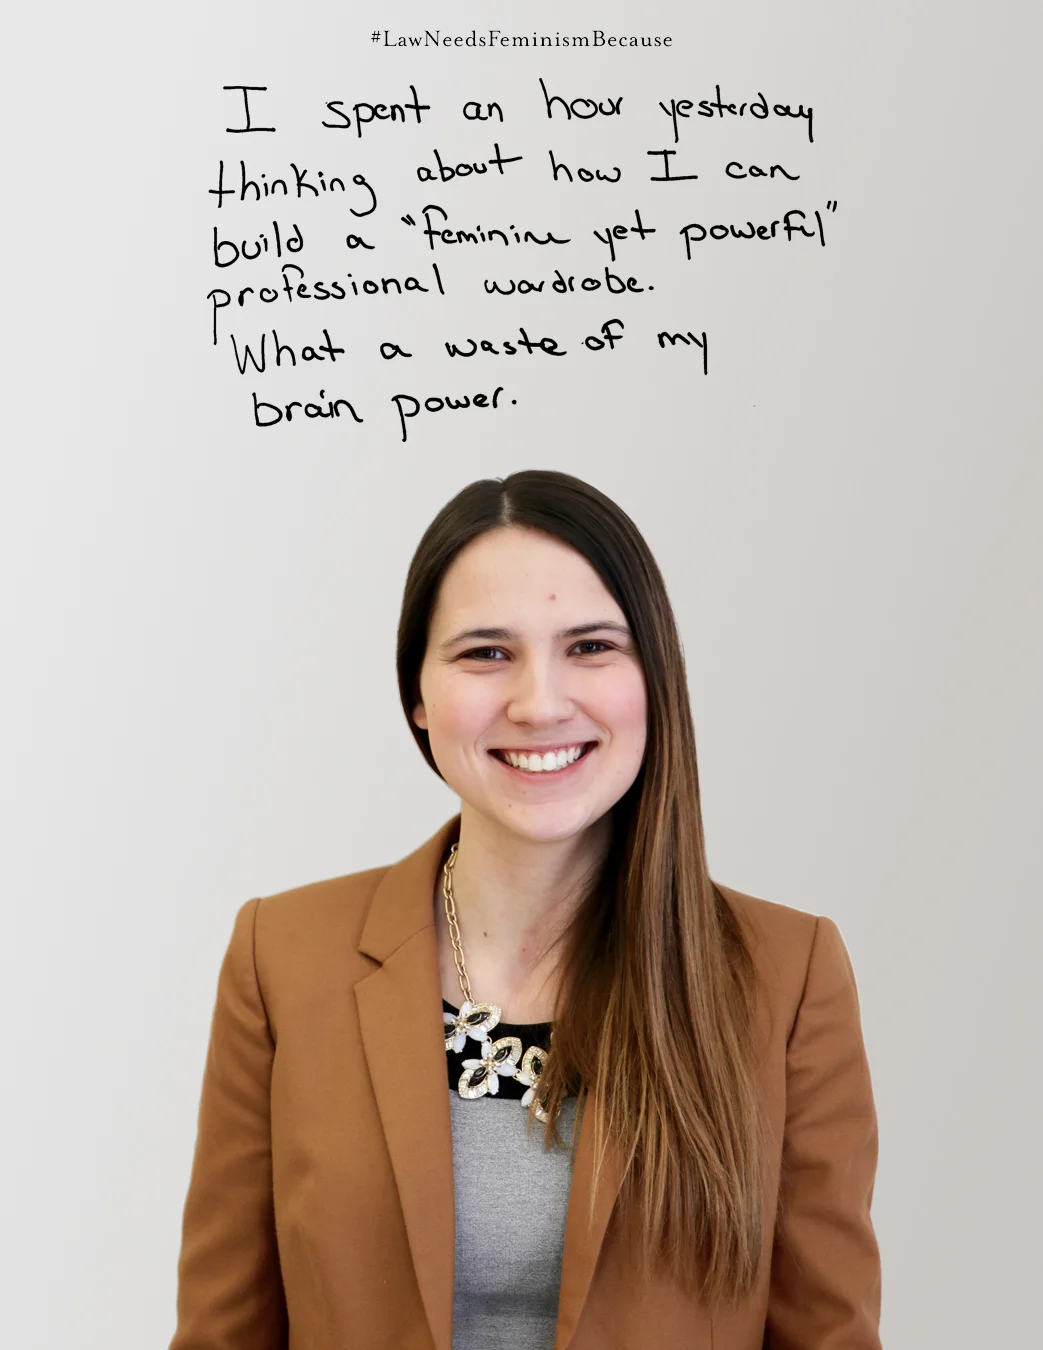 #LawNeedsFeminismBecause
I spent an hour yesterday
thinking about how I can
build a "feminine yet powerful"
professional wardrobe.
What a waste of my
brain power.